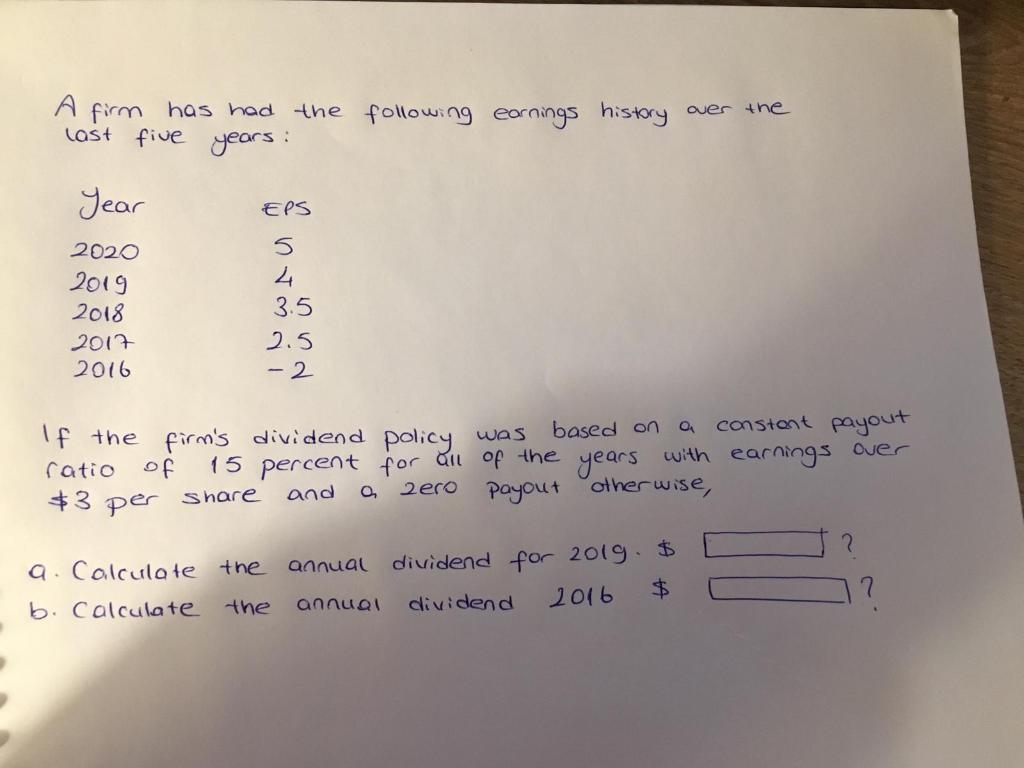 A firm has had the following earnings history over the
last five years:
Year EPS
2020 5
2019 4
2018 3.5
2017 2.5
2016 -2
If the firm's dividend policy was based on a constant payout
ratio of 15 percent for all of the years with earnings over
$3 per share and a zero payout otherwise,
a. Calculate the annual dividend for 2019. $ ?
b. Calculate the annual dividend 2016 $ ?